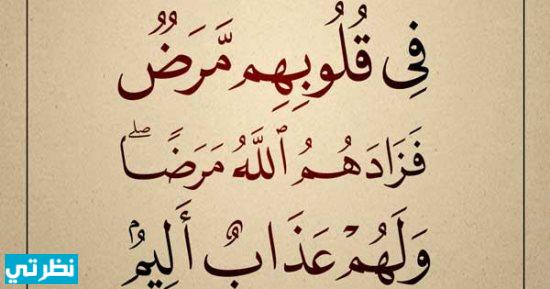 فِى قُلُوبِهِم مَّرَضٌ
فَزَادَهُمُ ٱللَّهُ مَرَضًا ۖ
وَلَهُمْ عَذَابٌ أَلِيمٌۢ
نظرتي